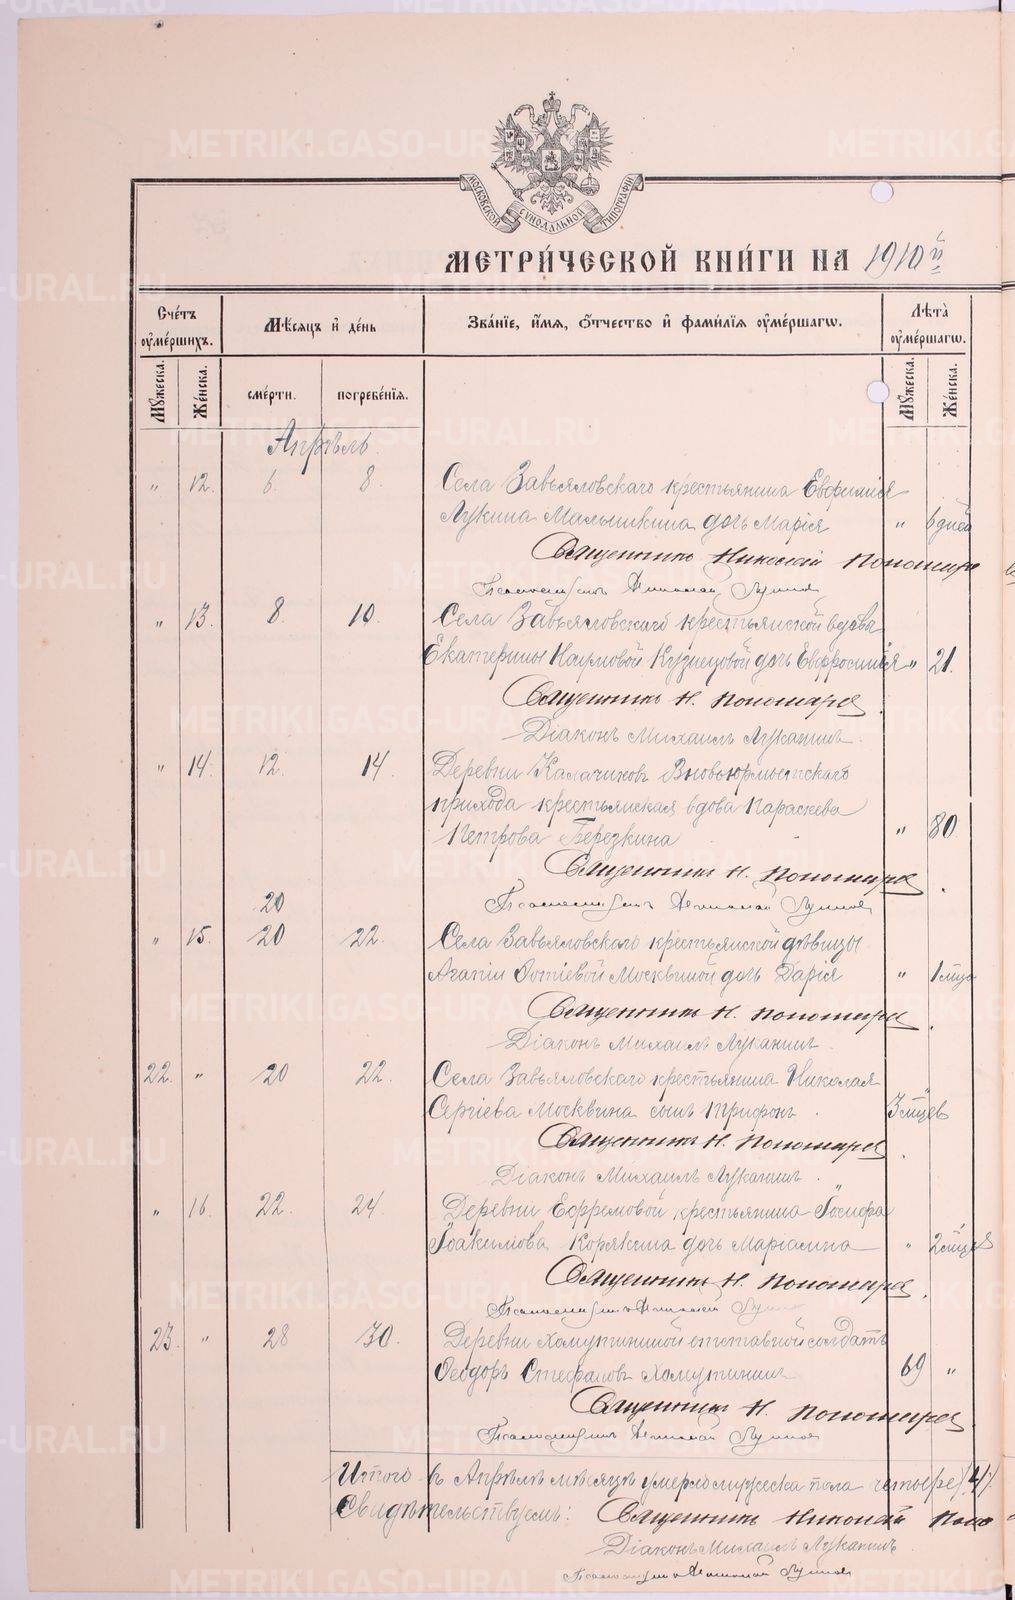 МОСКОВСКОЙ СѴНОДАЛЬНОЙ ТИПОГРАФІИ
МЕТРИ́ЧЕСКОЙ КНИ́ГИ НА 1910й
Сче́тъ оумéршихъ.
Мѣ́сяцъ и҆ де́нь
Зва́нїе, и҆́мя, ѻ҆́тчество и҆ фами́лїя оумéршагѡ.
Лѣта̀ оумéршагѡ.
Мꙋ́жеска.
Же́нска.
сме́рти.
погребе́нїя.
Мꙋ́жеска.
Же́нска.
Апрѣль.
" 12. 6. 8. Села Завьяловскаго крестьянина Евфимія
Лукина Малышкина дочь Марія " 6 дней
Священникъ Николай Пономаре
Псаломщикъ
" 13. 8. 10. Села Завьяловскаго крестьянской вдовы
Екатерины Наумовой Кузнецовой дочь Евфросинія " 21.
Священникъ Н. Пономарев
Діаконъ Михаилъ Луканинъ.
" 14. 12. 14. Деревни Калачиковъ Вновьюрмытскаго
прихода крестьянская вдова Параскева
Петрова Березкина " 80
Священникъ Н. Пономарев
20 Псаломщикъ
" 15. 20 22. Села Завьяловскаго крестьянской дѣвицы
Агапіи Фотіевой Москвиной дочь Дарія " 1 мца
Священникъ Н. Пономарев
Діаконъ Михаилъ Луканинъ.
22. " 20 22. Села Завьяловскаго крестьянина Николая
Сергіева Москвина сынъ Трифонъ. 3 мцев "
Священникъ Н. Пономарев
Діаконъ Михаилъ Луканинъ.
" 16. 22. 24. Деревни Ефремовой крестьянина Іосифа
Іоакимова Корякина дочь Маріамна " 2 мцев
Священникъ Н. Пономарев
Псаломщикъ
23. " 28 30. Деревни Хомутининой отставной солдатъ
Ѳеодоръ Стефановъ Хомутининъ 69 "
Священникъ Н. Пономарев
Псаломщикъ
Итого въ Апрѣлѣ мѣсяцѣ умерло мужеска пола четыре /4/
Свидѣтельствуемъ: Священникъ Николай Поно
Діаконъ Михаилъ Луканинъ.
Псаломщикъ
METRIKI.GASO-URAL.RU